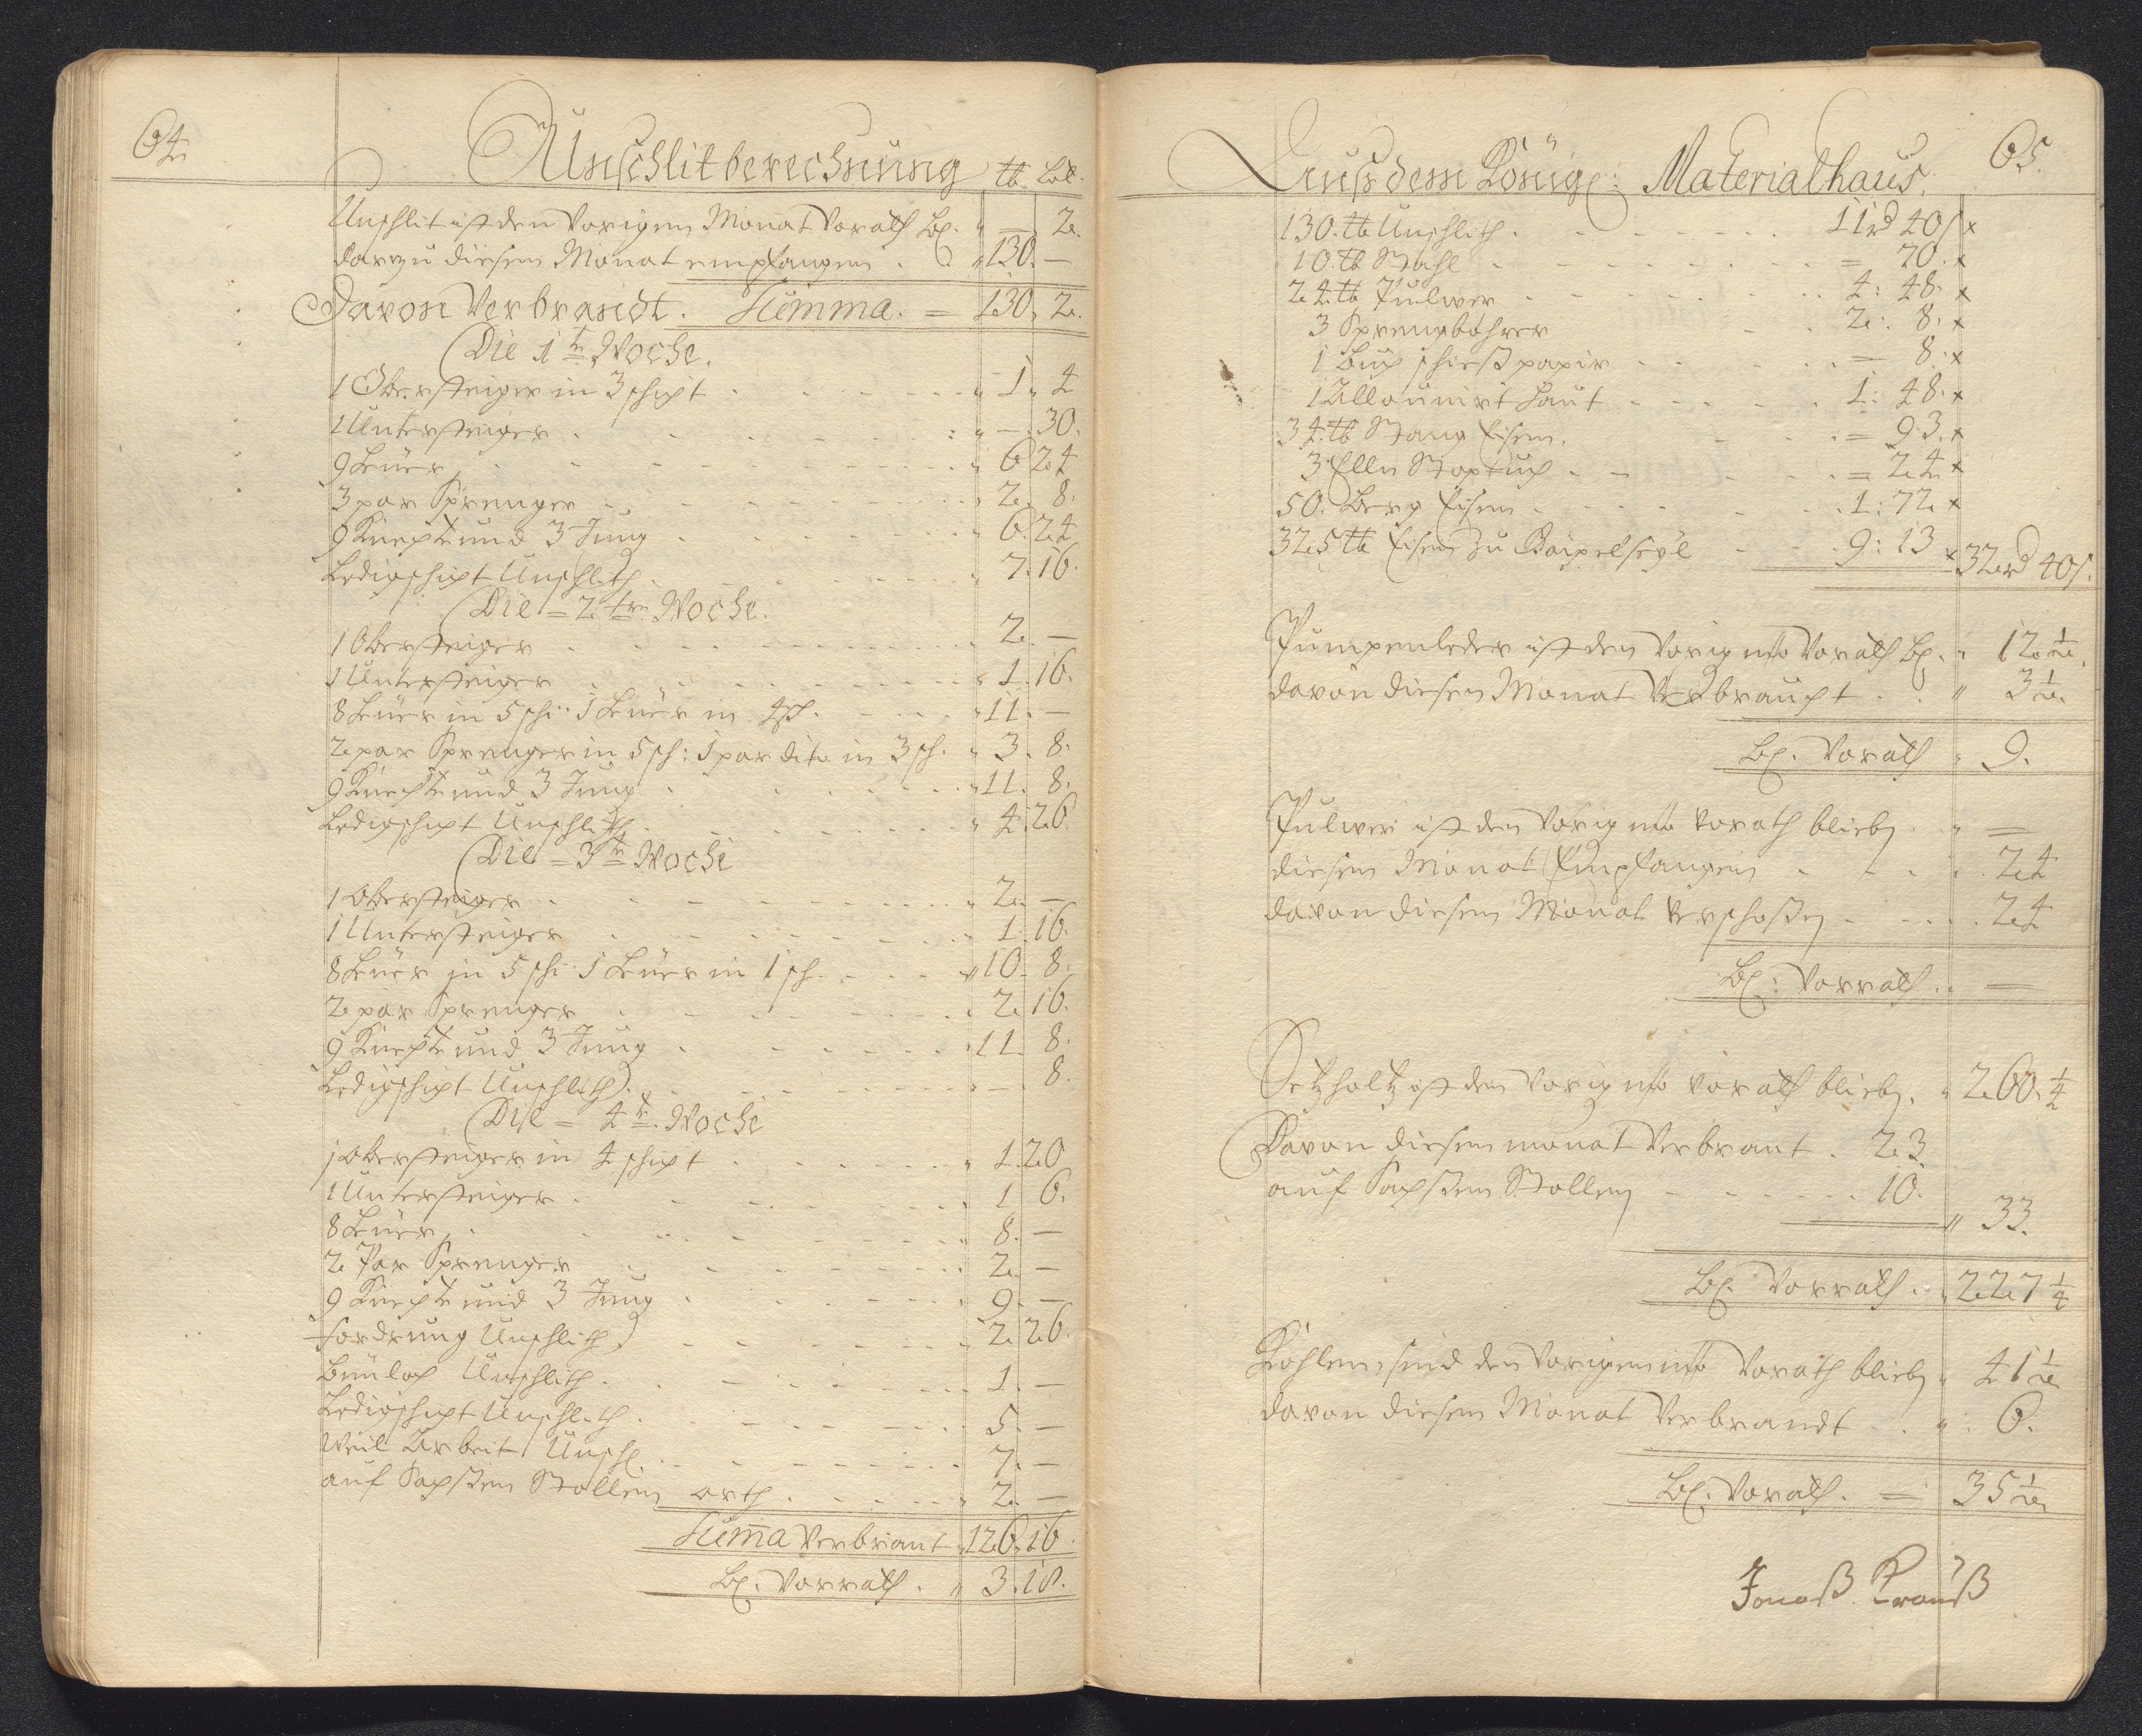 64.
Unschlitberechnung ℔ Lot.
Unschlit ist den Vorigen Monat Vorath bl. " — 2.
darzu diesen Monat empfangen . " 130. —
Davon Verbrandt. Summa. = 130. 2.
Die 1te Woche.
1 Obersteiger in 3 schicht " 1 " 4
1 Untersteiger . " — . 30.
9 Heuer . " 6 24
3 par Sprenger . " 2. 8.
9 Knechte und 3 Jung . " 6. 24
Ledigschicht Unschlith . " 7. 16.
Die = 2te Woche.
1 Obersteiger . 2. —
1 Untersteiger . " 1. 16.
8 Heuer in 5 sch: 1 Heuer in 4 sch. " 11. —
2 par Sprenger in 5 sch: 1 par dito in 3 sch. " 3. 8.
9 Knechte und 3 Jung . " 11. 8.
Ledigschicht Unschlith . " 4. 26.
Die = 3te Woche
1 Obersteiger . " 2. —
1 Untersteiger . " 1. 16.
8 Heuer in 5 sch: 1 Heuer in 1 sch. " 10. 8.
2 par Sprenger . " 2. 16.
9 Knechte und 3 Jung . " 11. 8.
Ledigschicht Unschlith . " — . 8.
Die = 4te Woche
1 Obersteiger in 4 schicht . " 1. 20
1 Untersteiger . " 1 6.
8 Heuer . " 8. —
2 Par Sprenger . " 2. —
9 Knechte und 3 Jung . " 9. —
fordrung Unschlith . " 2. 26.
Unschlith . " 1. —
Ledigschicht Unschlith . " 5. —
Weil Arbeit Unschl. " 7. —
auf Sachsen Stollen orth . " 2. —
Summa Verbrant " 126. 16.
bl. Vorrath . " 3. 18.
65.
Aus dem Königl: Materialhaus.
130. ℔ Unschlith . 11 rd 40 s x
10. ℔ Stahl . = 70. x
24. ℔ Pulwer . 4: 48. x
3 Sprengbohrer . 2: 8. x
1 Buch schieß papir . = 8. x
1 Allaunirt Haut . 1: 48. x
34. ℔ Stang Eisen. = 93. x
3 Elln = 24 x
50. Berg Eisen . 1: 72 x
325 ℔ Eisen zu 9: 13 x 32 rd 40 s.
Pumpenleder ist den Vorig mo Vorath bl. " 12 1/2.
davon diesen Monat Verbraucht . " 3 1/2.
bl. Vorath " 9.
Pulwer ist den Vorig mo Vorath blieb . " =
diesen Monat Empfangen . 24
davon diesen Monat Verschoßen . 24
bl: Vorrath . =
Setzholtz ist den Vorig mo Vorath blieb. " 260. 1/4
Davon diesen monat Verbrant . 23
auf Sachsen Stollen . 10.
" 33.
bl. Vorrath . 227 1/4
Kohlen sind den Vorigen mo Vorath blieb " 41 1/2
davon diesen Monat Verbrandt . " 6.
bl. Vorath. = 35 1/2.
Jonaß. Krauß